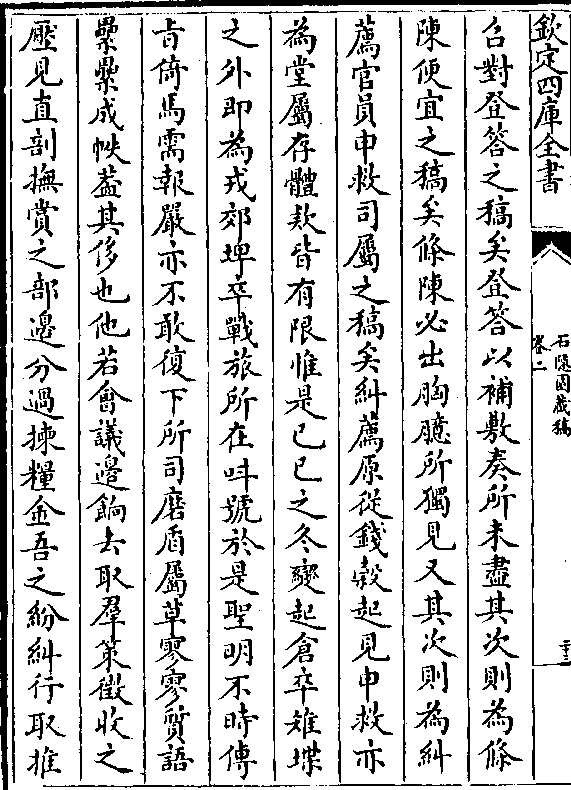 欽定四庫全書
石隱園藏稿
卷二
二十三
召對登答之稿矣登答以補敷奏所未盡其次則為條
陳便宜之稿矣條陳必出胸臆所獨見又其次則為糾
薦官員申救司屬之稿矣糾薦原從錢穀起見申救亦
為堂屬存體欵皆有限惟是已已之冬變起倉卒雉堞
之外即為戎郊埤卒戰旅所在呌號於是聖明不時傳
㫖倚馬需報嚴亦不敢復下所司磨盾屬草寥寥質語
纍纍成帙葢其侈也他若會議邊餉去取羣策徵收之
壓見直剖撫賞之部邊分過揀糧金吾之紛糾行取推